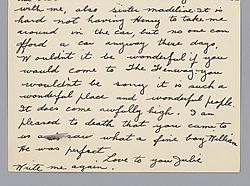 with me, also sister madeline. It is
hard not having Henry to take me
around in the car, but no one can
fford a car anyway these days.
Wouldn't it be wonderful if you
would come to The Fenway you
wouldn't be sorry it is such a
wonderful place and wonderful people.
It does come awfully high. I am
pleased to death that you came to
us saw what a fine boy William
He was perfect
Love to you Julie
Write me again.